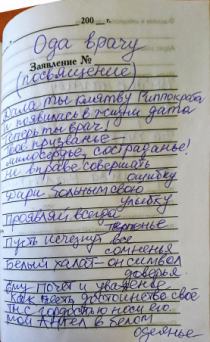 200 г.
Ода врачу
Заявление №
(посвящение)
Дала ты клятву Гиппократа
И появилась в жизни дата
Теперь ты врач!
Твоё призванье —
милосердье, состраданье!
Не вправе совершать
ошибку
Дари больным свою
улыбку
Проявляй всегда
терпенье
Пусть исчезнут все
сомненья
Белый халат — он символ
доверья.
Ему почёт и уваженье
Как честь достоинство своё
Ты с гордостью неси его.
Мой Ангел в белом
одеянье